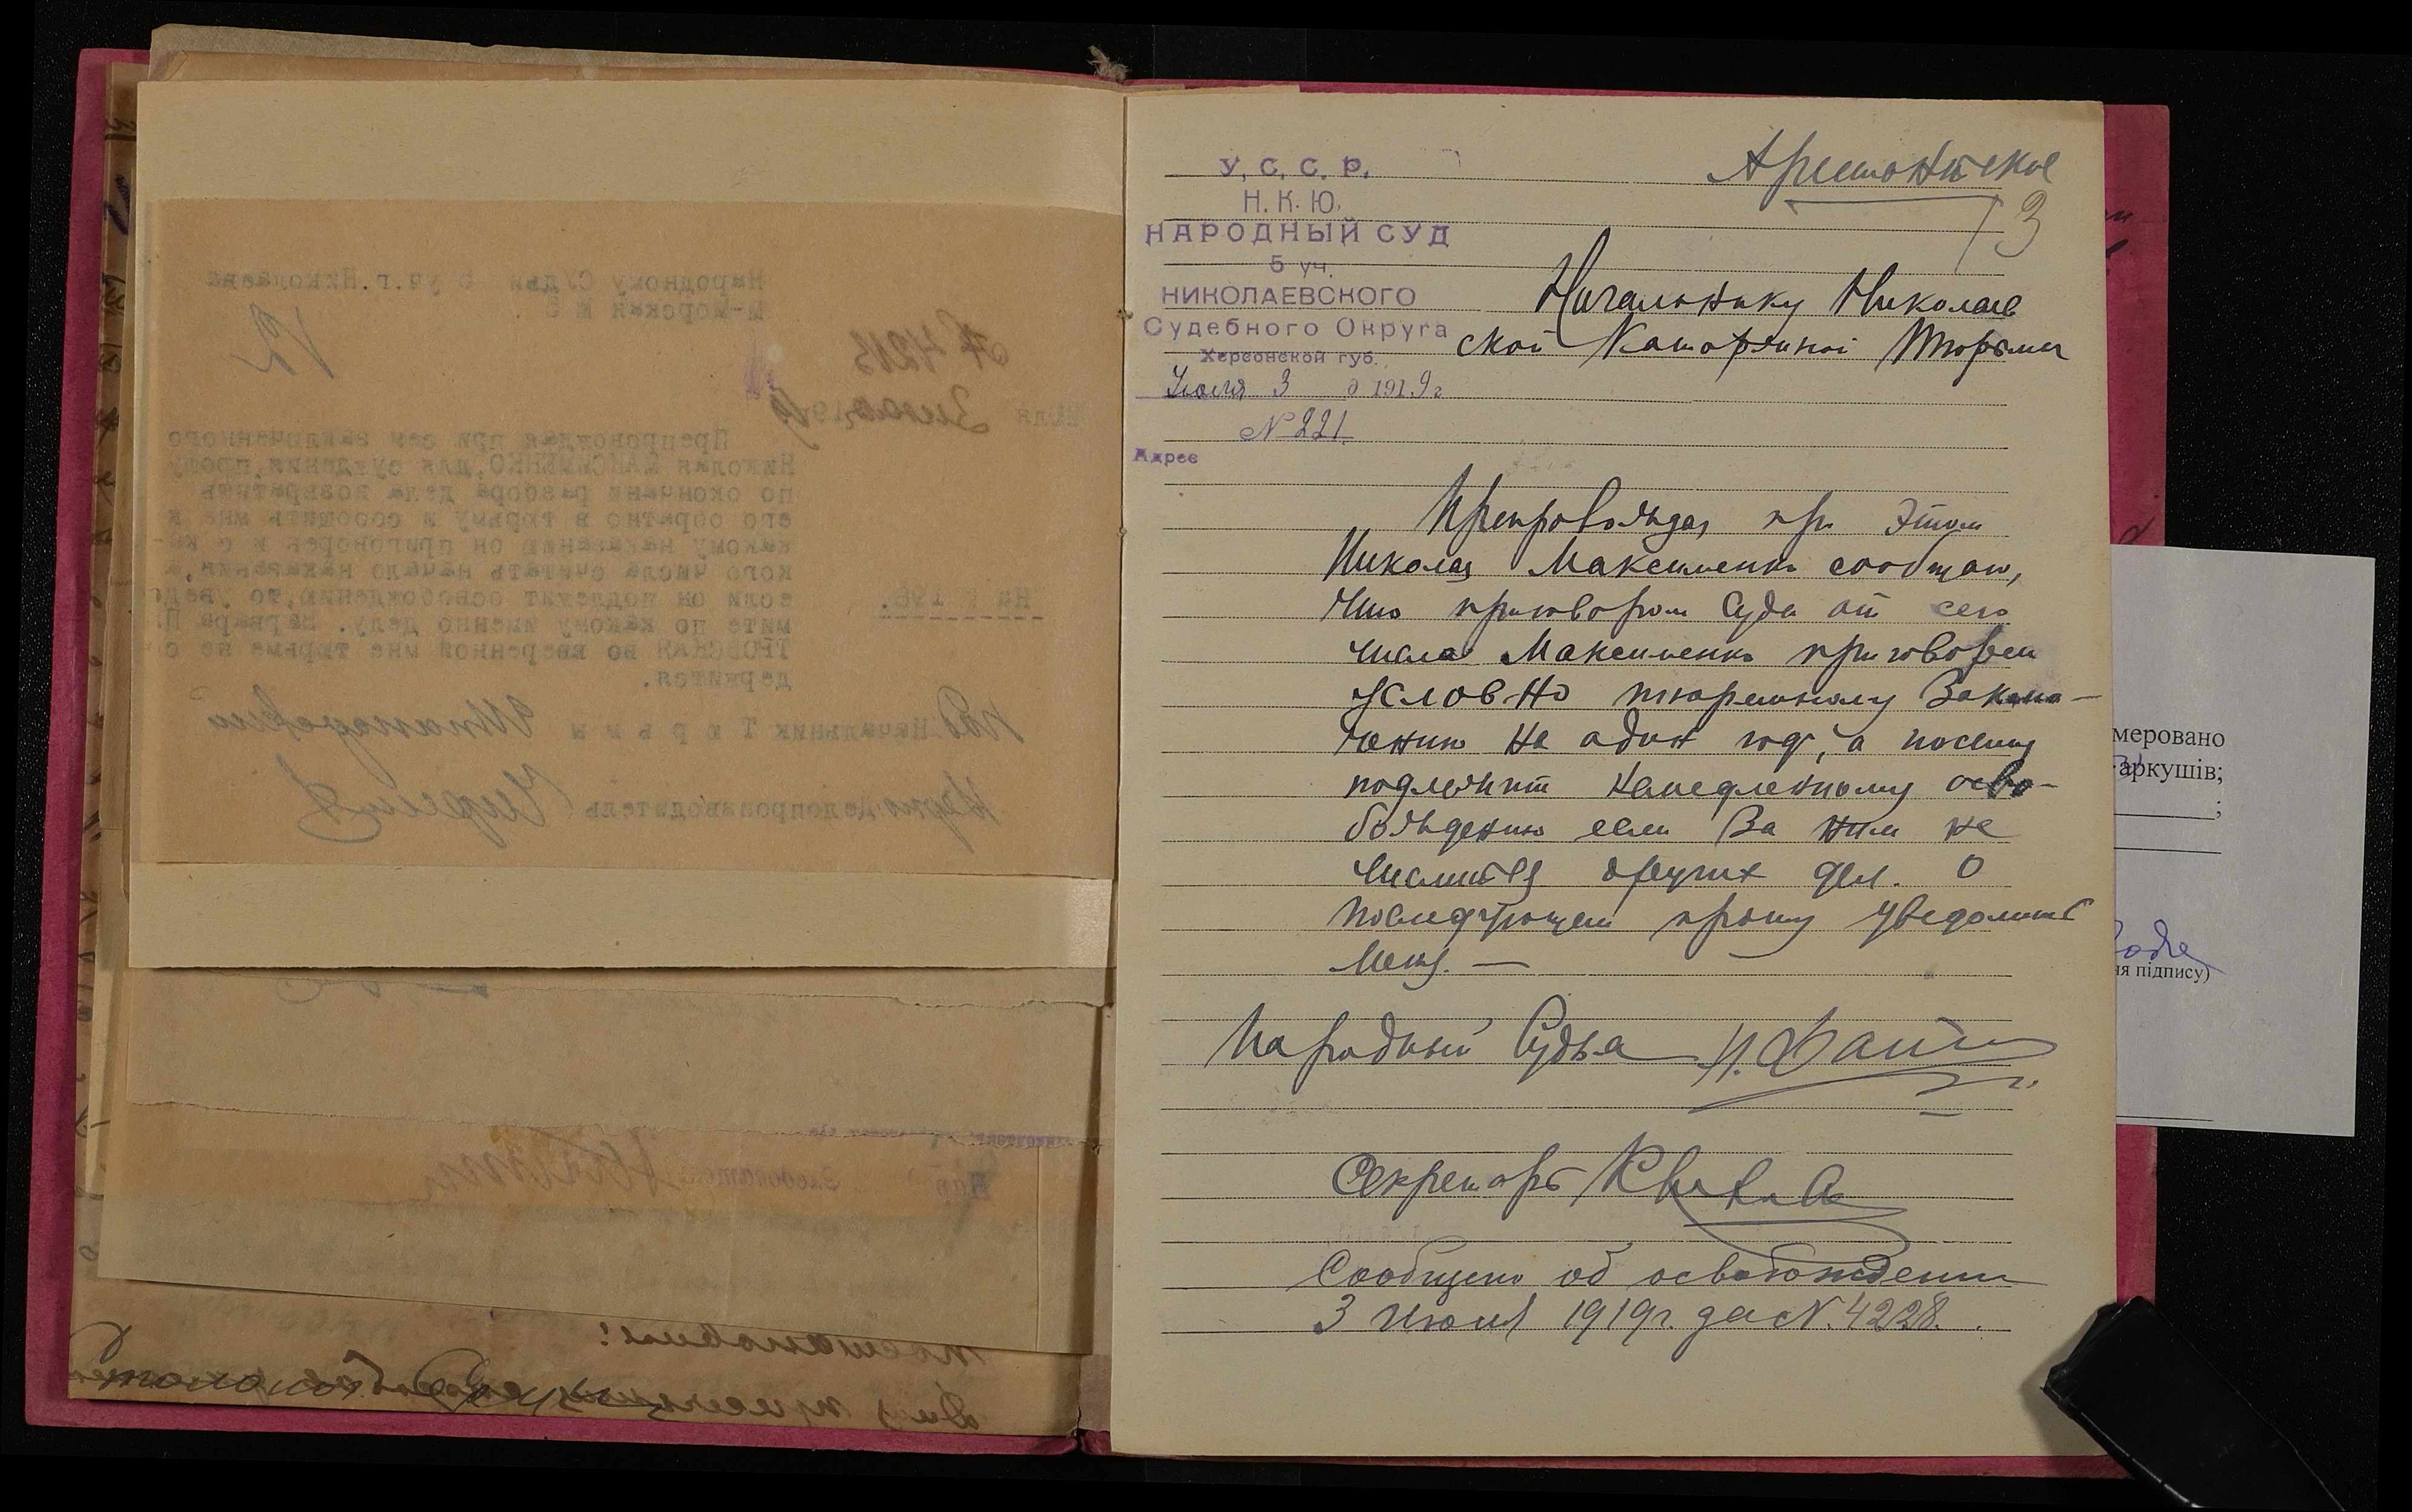 У. С. С. Р.
Н. К. Ю.
НАРОДНЫЙ СУД
5 уч.
НИКОЛАЕВСКОГО
Судебного Округа
Херсонской губ.
Июля 3 д 1919 г
№ 221.
Адрес
Арестантское
13
Начальнику Николаев
ской Каторжной Тюрьмы
Препровождая при этом
Николая Максименко сообщаю,
что приговором Суда от сего
числа Максименко приговорен
условно тюремному Заклю-
чению на один год, а посему
подлежит немедленному осво-
бождению если За ним не
числится других дел. О
последующем прошу уведомить
меня. —
Народный Судья
Секретарь
Сообщено об освобождении
3 июля 1919 г. за № 4228.
Народному Судьи 5 уч.г.Николаева
М-Морская № 5.
12
№ 4213
3 июля 1919
Препровождая при сем заключенного
Николая МАКСИМЕНКО,для суждения,прошу
по окончани разбора дела возвратить
его обратно в тюрьму и сообщить мне к
какому наказанию он приговорен и с ка-
кого числа считать начало наказания,а
если он подлежит освобождению,то уведо
мите по какому именно делу. Варвара П
ТРОВСКАЯ во вверенной мне тюрьме не со
держится.
На № 196.
Начальник Т ю р ь м ы
Делопроизводитель
постановил:
меровано
аркушів;
;
ня підпису)